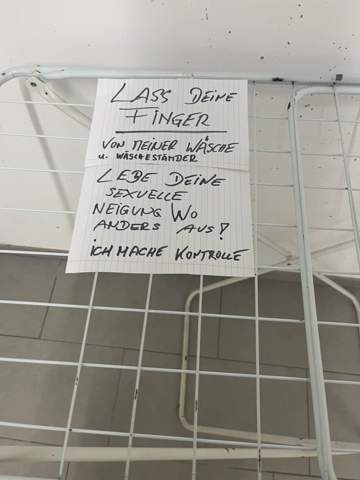 LASS DEINE
FINGER
VON MEINER WÄSCHE
u. WÄSCHESTÄNDER
LEBE DEINE
SEXUELLE
NEIGUNG WO
ANDERS AUS!
ICH MACHE KONTROLLE